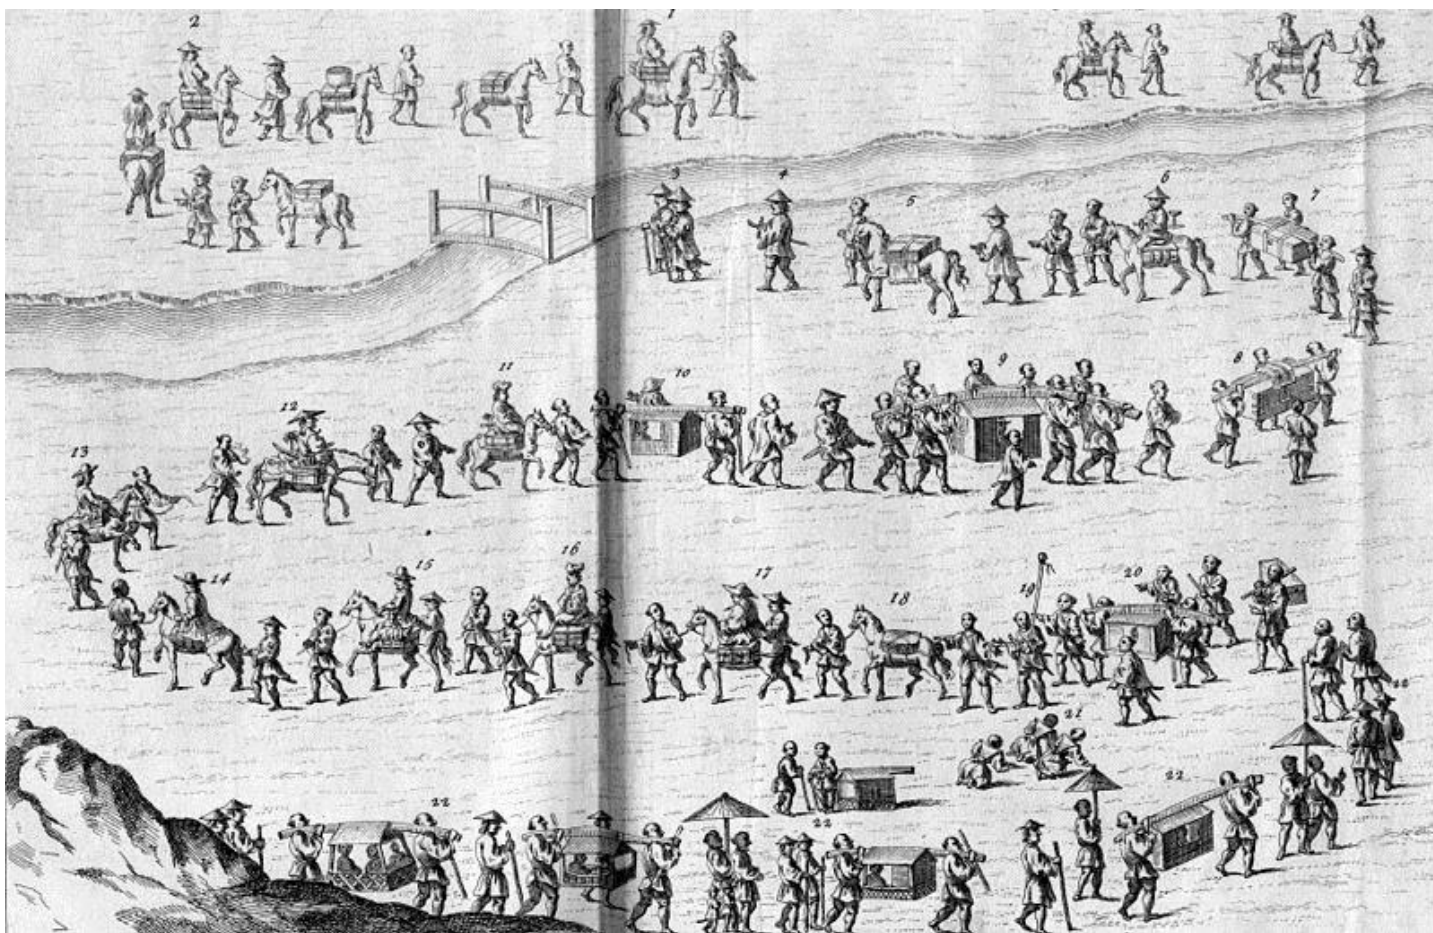 2
1
3
4
5
6
7
8
9
10
11
12
13
14
15
16
17
18
19
20
21
22
22
22